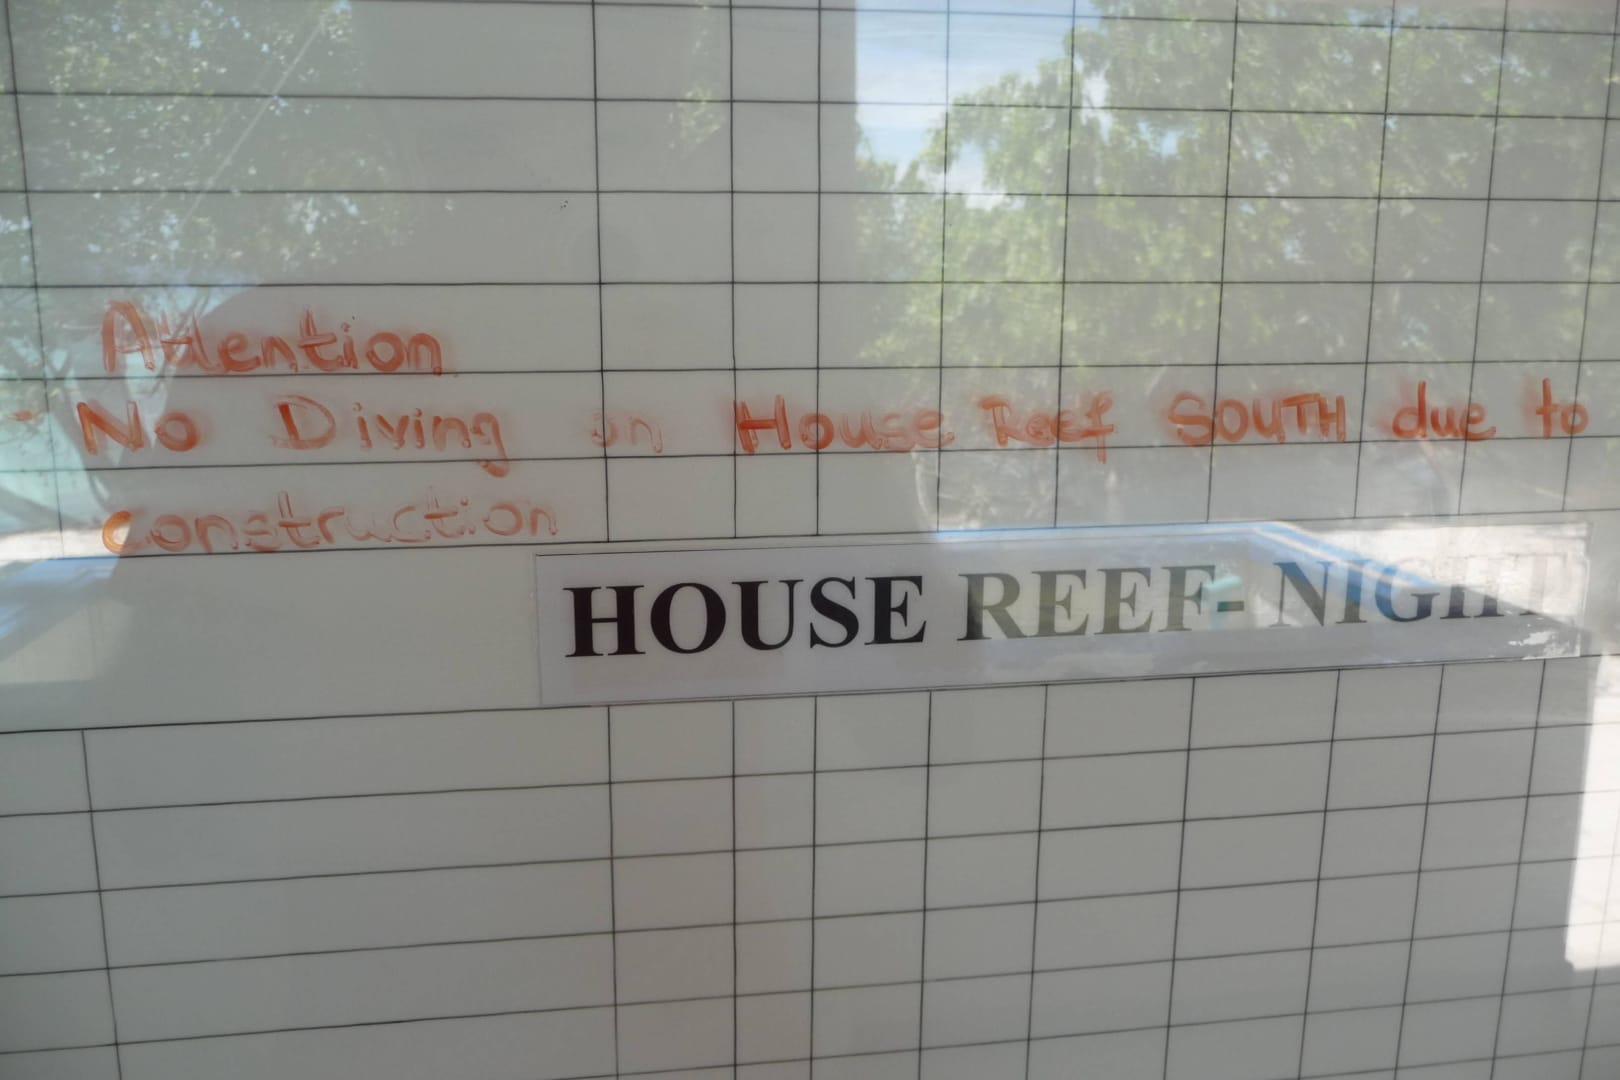 Attention
No Diving on House Reef SOUTH due to
construction
HOUSE REEF- NIGHT